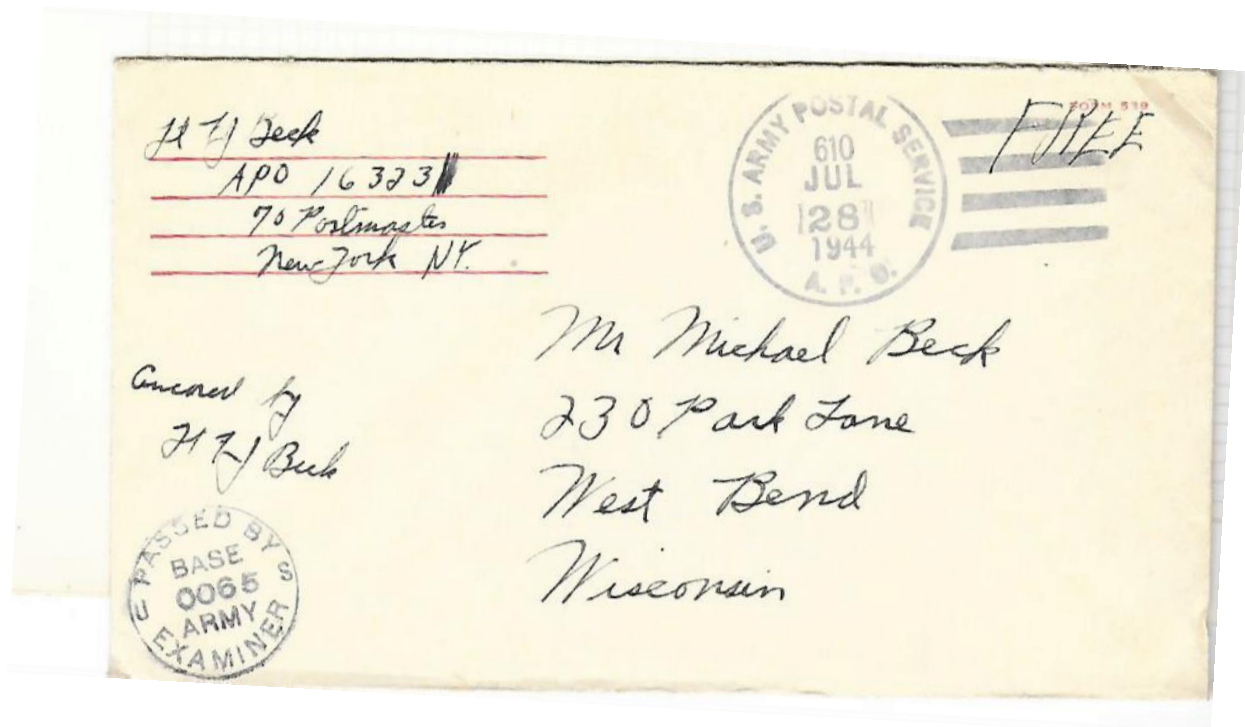 Lt FJ Beck
APO 16323
% Postmaster
New York NY.
U.S. ARMY POSTAL SERVICE
610
JUL
28
1944
A. P. O.
FORM 539
FREE
Mr Michael Beck
230 Park Lane
West Bend
Wisconsin
Censored by
Lt FJ Beck
PASSED BY
BASE
0065
ARMY
EXAMINER
U S